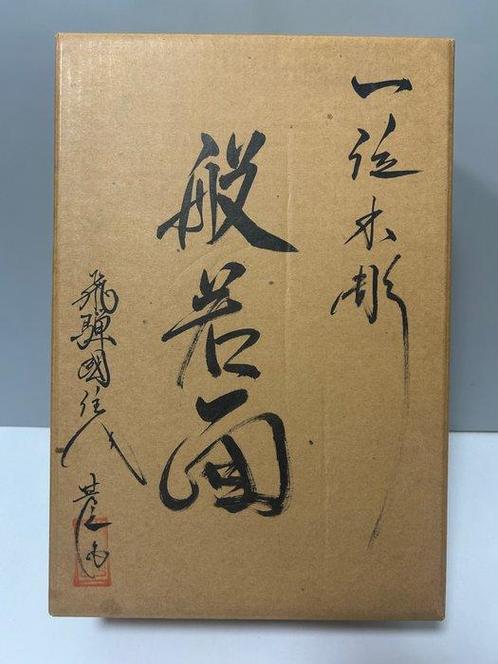 一位木彫
般若面
飛騨國住人